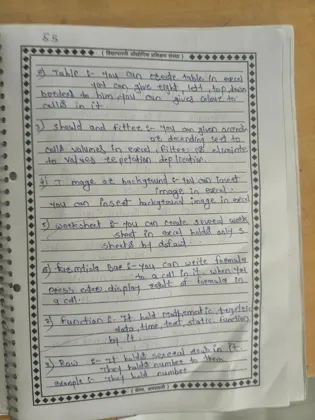 55
( विद्याभारती औद्योगिक प्रशिक्षण संस्था )
Table :- You can create table in excel
you can give right, left top down
borders to him, you can gives colour to
cells in it
and filter :- You can given
or decending sort to
cells volumes in excel. Filter
to values repetation duplication.
image or background :- You can insert
image in excel.
You can insert background image in excel
worksheet :- you can create several work
sheet in excel holds only 3
sheets by defaut.
Bar :- you can write formula
to a cell in it. when you
press enter display result of formula in
a cell.
Function :- It hold mathematic
data, time, text, static function
by it
Row :- It holds several in it.
They holds number to them
example :- They hold number